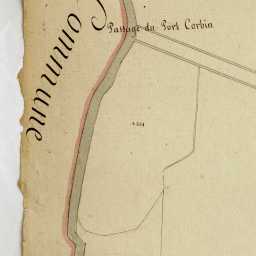 Commune
Passage du Port Corbin